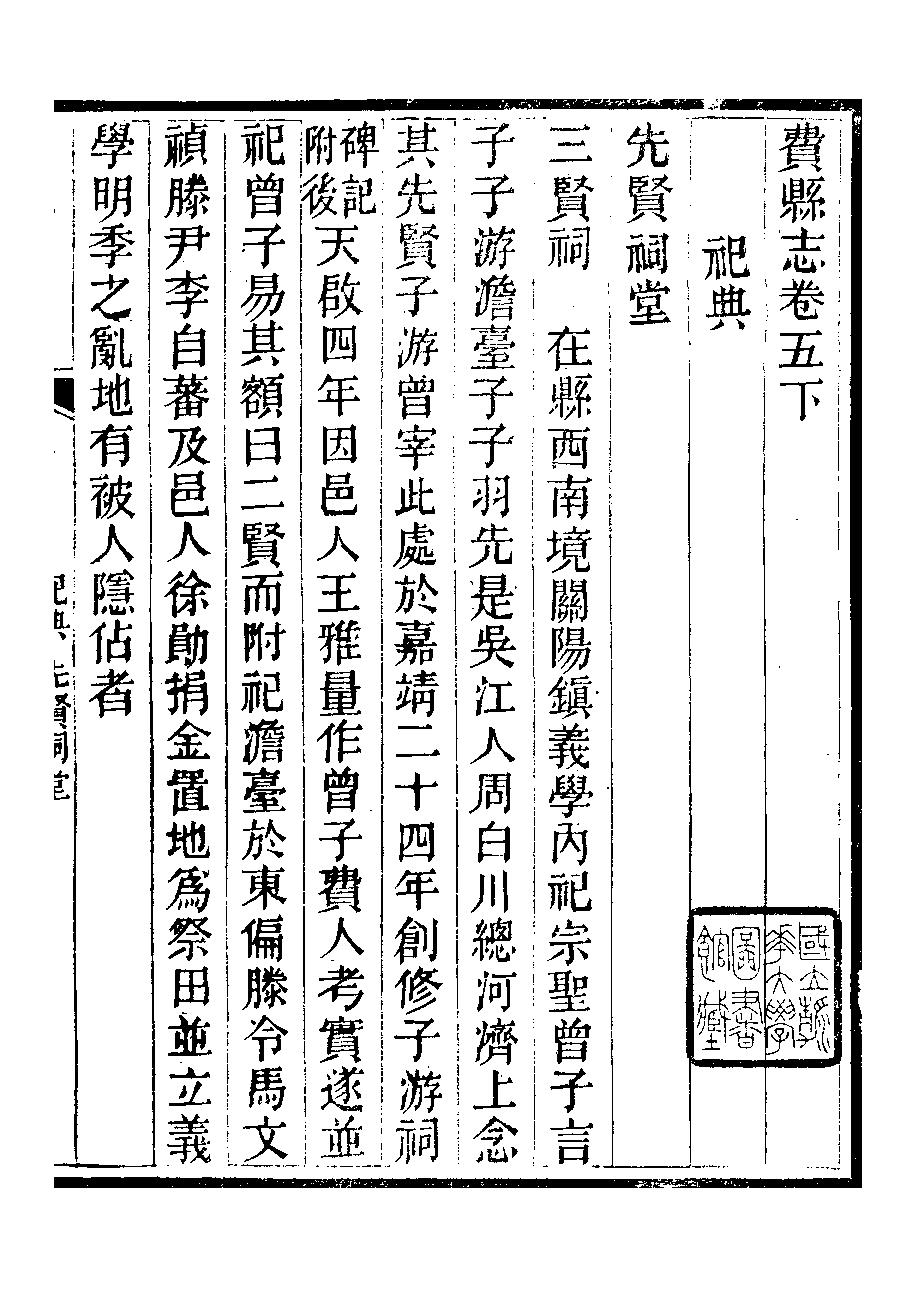 費縣志卷五下
祀典
先賢祠堂
三賢祠　在縣西南境關陽鎮義學內祀宗聖曾子言
子子游澹臺子子羽先是吳江人周白川總河濟上念
其先賢子游曾宰此處於嘉靖二十四年創修子游祠
碑記附後天啟四年因邑人王雅量作曾子費人考實遂並
祀曾子易其額曰二賢而附祀澹臺於東偏滕令馬文
禎滕尹李自蕃及邑人徐勛捐金置地爲祭田並立義
學明季之亂地有被人隱佔者
祀典 先賢祠堂
國立
圖書館藏